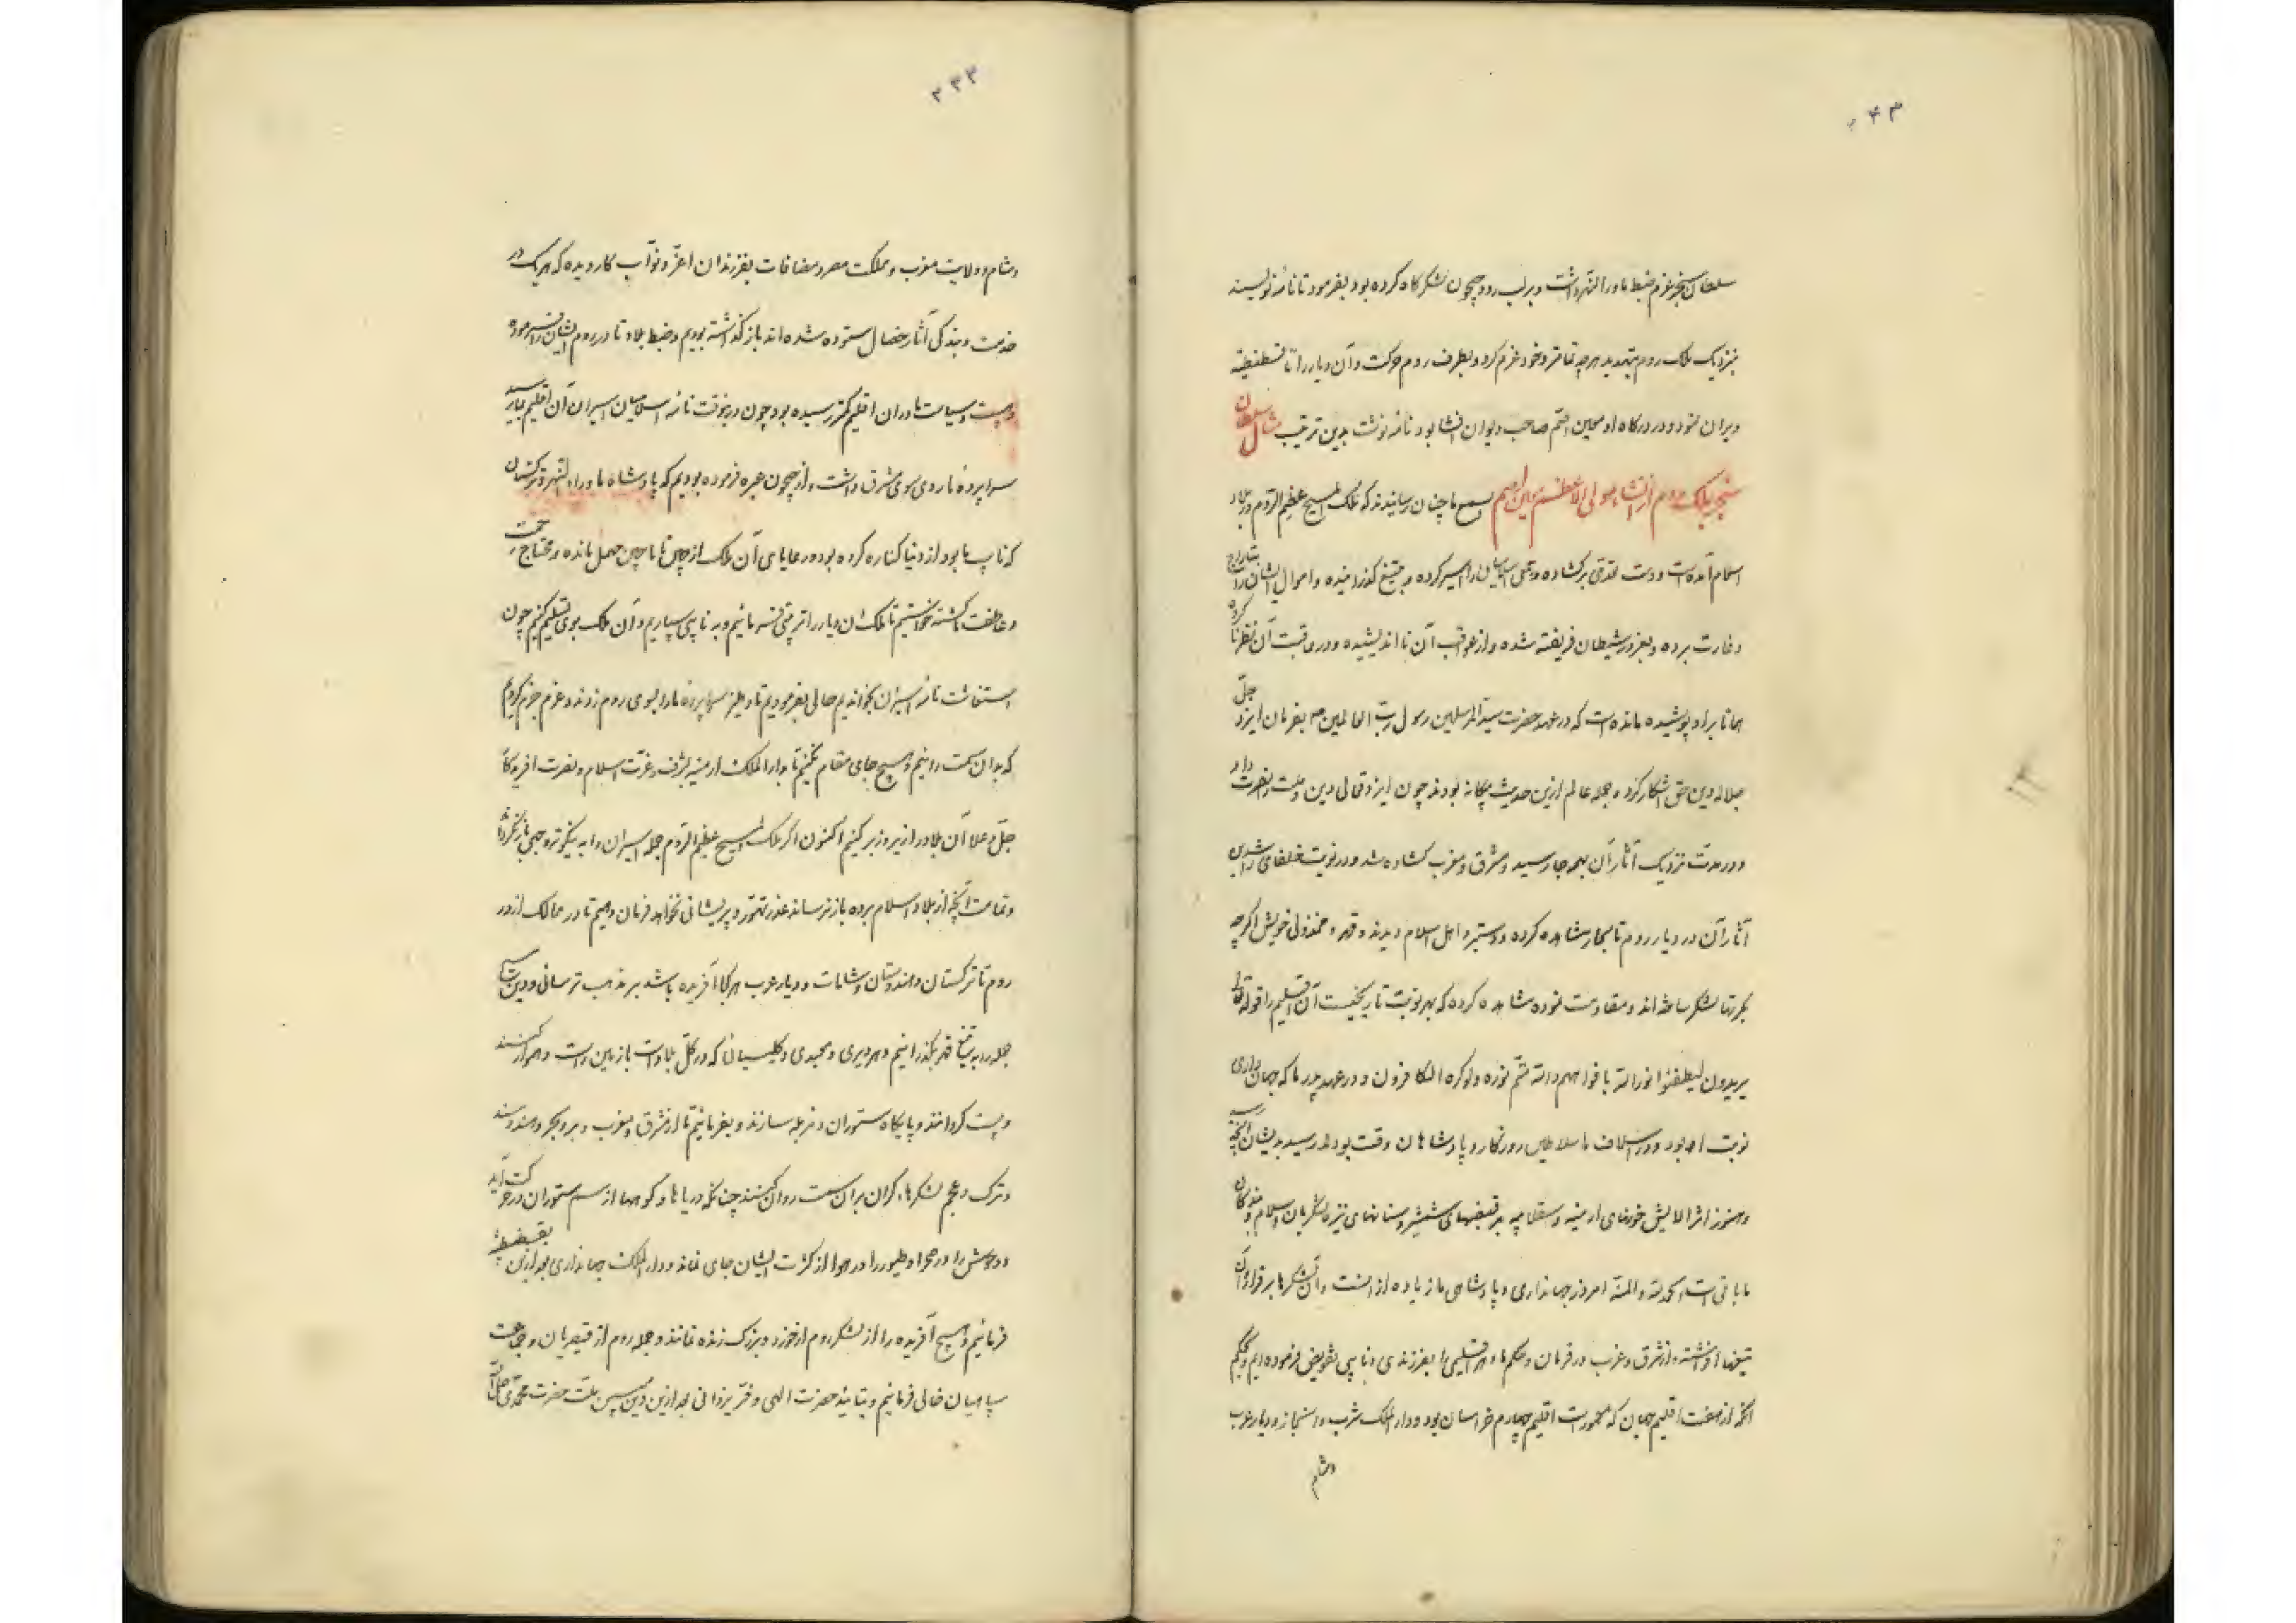 سلطان سنجر عزم ضبط ماوراءالنهر داشت و بر لب رود جیحون لشکرگاه کرده بود بفرمود تا نامه نویسند
بنزدیک ملک روم بتهدید هر چه تمامتر و خود عزم کرد و بطرف روم حرکت و آن دیار را تا قسطنطنیه
ویران نمود و در درگاه او معین اصم صاحب دیوان انشا بود نامه نوشت بدین ترتیب مثال سلطان
سنجر بملک روم از انشاء مولی الاعظم معین اصم بسمع ما چنان رسانیدند که ملک المسیح عظیم الروم در بلاد
اسلام آمده است و دست تعدی برگشاده و بعضی اسلامیان را اسیر کرده و بتیغ گذرانیده و اموال ایشان را بتاراج
و غارت برده و بغرور شیطان فریفته شده و از عواقب آن نااندیشیده و در عاقبت آن نظر نا کرده
همانا بر او پوشیده مانده است که در عهد حضرت سید المرسلین رسول رب العالمین ص بفرمان ایزد جل
جلاله دین حق آشکار کرد و جمله عالم ازین حدیث بیگانه بودند چون ایزد تعالی دین و ملت را نصرت داد
و در مدت نزدیک آثار آن بهمه جا رسید و شرق و غرب گشاده شد و در نوبت خلفای راشدین
آثار آن در دیار روم تا بیجار مشاهده کرده و دستبرد اهل اسلام دیدند و قهر و مخذولی خویش اگر چه
بکرتها لشکر ساخته‌اند و مقاومت نموده مشاهده کرده که بهر نوبت تاریخیست آن اقلیم را قوله تعالی
یریدون لیطفئوا نور الله بافواههم والله متم نوره ولو کره الکافرون و در عهد پدر ما که جهانداری
نوبت او بود و در اسلاف ما سلاطین روزگار و پادشاهان وقت بودند رسید بدیشان آنچه رسید
و هنوز اثر آلایش خونهای ارمنیه و سقلابیه بر قبضهای شمشیر و سنانهای نیزه لشکریان اسلام و بندگان
ما باقی است الحمدلله والمنه امروز جهانداری و پادشاهی ما زیاده از آنست و آن لشکرها برقرار و آن
تیغها افراشته و از شرق و غرب در فرمان و حکم ما و هر اقلیمی را بفرزندی و نایبی تفویض فرموده‌ایم و بحکم
آنکه از هفت اقلیم جهان که معمورست اقلیم چهارم خراسان بود و دارالملک شرب و استنجاز و دیار عرب
و شام
۲۳۳
و شام و ولایت مغرب و مملکت مصر و مضافات بفرزندان اعز و نواب کار دیده که هر یک در
خدمت و بندگی آثار خصال ستوده شده‌اند باز گذاشته بودیم و ضبط بلاد تا در روم ایشان را فرموده
و هیبت و سیاست ما در آن اقلیم کمتر رسیده بود چون درینوقت نامه اسلامیان اسیران آن اقلیم بما رسید
سراپرده ما روی سوی مشرق داشت و از جیحون عبره فرموده بودیم که پادشاه ماوراءالنهر و ترکستان
که نایب ما بود از دنیا کناره کرده بود و رعایای آن ملک از چین تا ماچین مهمل مانده و محتاج رحمت
و عاطفت گشته خواستیم تا ملک آن دیار را ترتیبی فرمائیم و به نایبی سپاریم و آن ملک بوی تسلیم کنیم چون
استغاثت نامه اسیران بخواندیم حالی بفرمودیم تا دهلیز سراپرده ما را بسوی روم زدند و عزم جزم کردیم
که بدان سمت رانیم و هیچ جای مقام نکنیم تا بدارالملک ارمنیه بشرف و عزت اسلام و نصرت آفریدگار
جل و علا آن بلاد را زیر و زبر کنیم اکنون اگر ملک المسیح عظیم الروم جمله اسیران را به نیکوترین وجهی باز نگرداند
و تمامت آنچه از بلاد اسلام برده باز نرساند عذر تهور و پریشانی نخواهد فرمان دهیم تا در ممالک از در
روم تا ترکستان و هندوستان و شامات و دیار عرب هر کجا آفریده باشد بر مذهب ترسائی و دین
جمله را به تیغ قهر بگذرانیم و هر دیری و معبدی و کلیسیائی که در کل بلاد است با زمین راست و هموار کنند
و پست گردانند و پایگاه ستوران و مزبله سازند و بفرمائیم تا از شرق و مغرب و بر و بحر و هند و سند
و ترک و عجم لشکرهاء گران بر آن سمت روان کنند چنانکه دریاها و کوهها از سم ستوران در حرکت آید
و وحوش را در صحرا و طیور را در هوا از کثرت ایشان جای نماند و دارالملک جهانداری بعد ازین بقسطنطنیه
فرمائیم و هیچ آفریده را از لشکر روم از خورد و بزرگ زنده نمانند و جمله روم از قیصریان و جماعت
سپاهیان خالی فرمائیم و بتایید حضرت الهی و فر یزدانی بعد ازین دین ملت حضرت محمدی